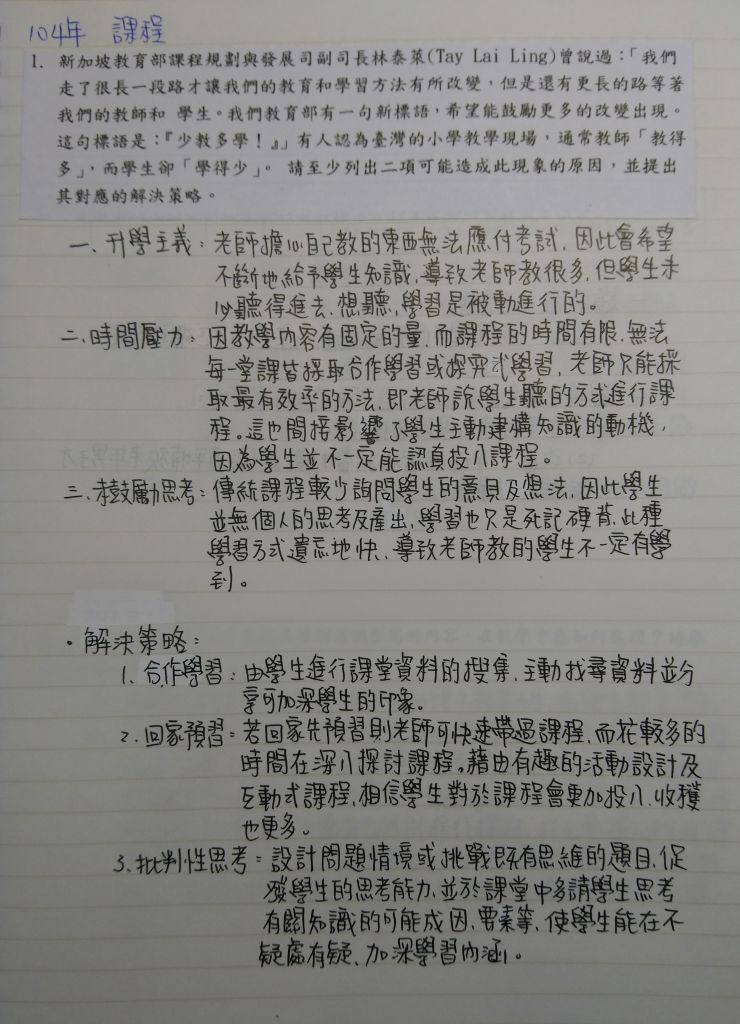 104年 課程
1. 新加坡教育部課程規劃與發展司副司長林泰萊(Tay Lai Ling)曾說過：「我們
走了很長一段路才讓我們的教育和學習方法有所改變，但是還有更長的路等著
我們的教師和 學生。我們教育部有一句新標語，希望能鼓勵更多的改變出現。
這句標語是：『少教多學！』」有人認為臺灣的小學教學現場，通常教師「教得
多」，而學生卻「學得少」。 請至少列出二項可能造成此現象的原因，並提出
其對應的解決策略。
一、升學主義：老師擔心自己教的東西無法應付考試，因此會希望
不斷地給予學生知識，導致老師教很多，但學生未
必聽得進去、想聽，學習是被動進行的。
二、時間壓力：因教學內容有固定的量，而課程的時間有限，無法
每一堂課皆採取合作學習或探究式學習，老師只能採
取最有效率的方法，即老師說學生聽的方式進行課
程。這也間接影響了學生主動建構知識的動機，
因為學生並不一定能認真投入課程。
三、未鼓勵思考：傳統課程較少詢問學生的意見及想法，因此學生
並無個人的思考及產出，學習也只是死記硬背，此種
學習方式遺忘地快，導致老師教的學生不一定有學
到。
・解決策略：
1. 合作學習：由學生進行課堂資料的搜集，主動找尋資料並分
享可加深學生的印象。
2. 回家預習：若回家先預習則老師可快速帶過課程，而花較多的
時間在深入探討課程。藉由有趣的活動設計及
互動式課程，相信學生對於課程會更加投入，收穫
也更多。
3. 批判性思考：設計問題情境或挑戰既有思維的題目，促
發學生的思考能力，並於課堂中多請學生思考
有關知識的可能成因、要素等，使學生能在不
疑處有疑，加深學習內涵。